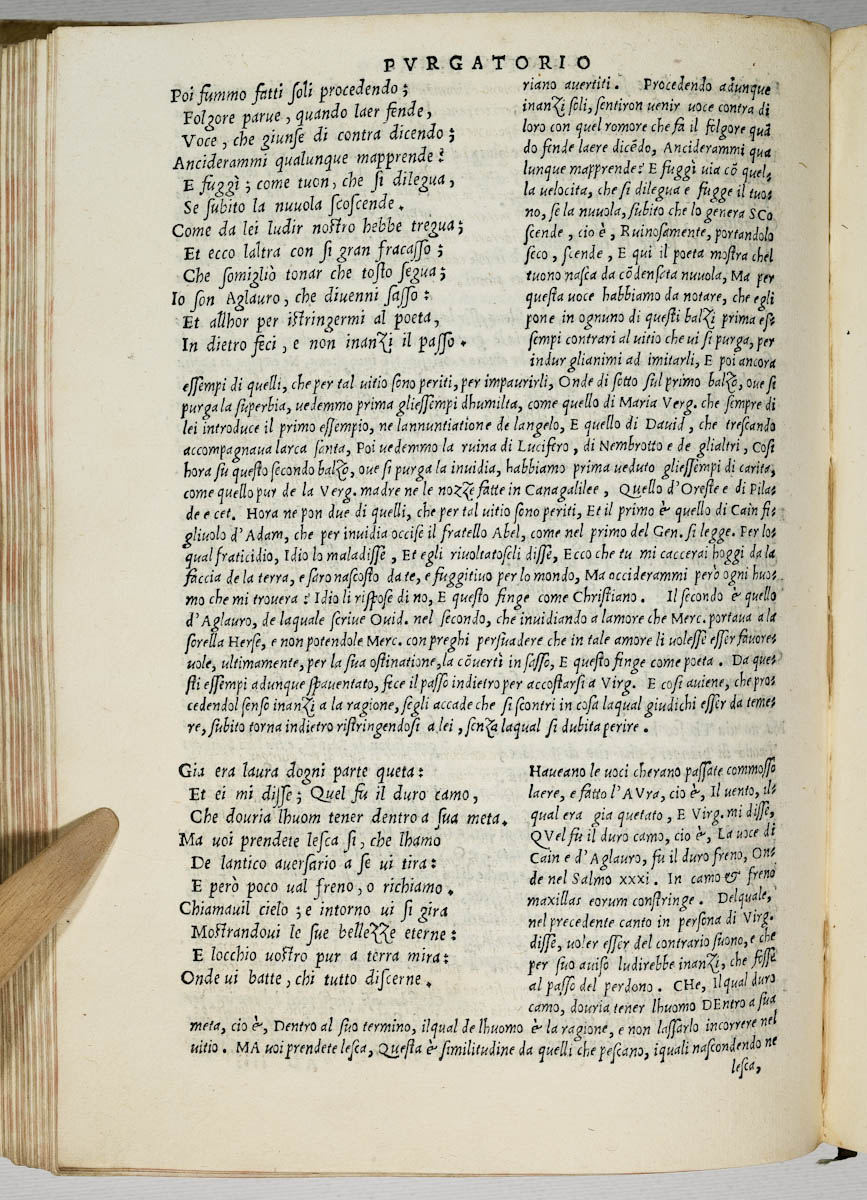 PVRGATORIO
Poi fummo fatti soli procedendo;
Folgore parue, quando laer fende,
Voce, che giunse di contra dicendo;
Anciderammi qualunque mapprende:
E fuggì; come tuon, che si dilegua,
Se subito la nuuola scoscende.
Come da lei ludir nostro hebbe tregua;
Et ecco laltra con si gran fracasso;
Che somigliò tonar che tosto segua;
Io son Aglauro, che diuenni sasso:
Et allhor per istringermi al poeta,
In dietro feci, e non inanzi il passo.
riano auertiti. Procedendo adunque
inanzi soli, sentiron uenir uoce contra di
loro con quel romore che fa il folgore quã
do fende laere dicẽdo, Anciderammi qua
lunque mapprende: E fuggì uia cõ quel,
la uelocita, che si dilegua e fugge il tuo=
no, se la nuuola, subito che lo genera SCo
scende, cio è, Ruinosamente, portandolo
seco, scende, E qui il poeta mostra chel
tuono nasca da cõdensata nuuola, Ma per
questa uoce habbiamo da notare, che egli
pone in ognuno di questi balzi prima es=
sempi contrari al uitio che ui si purga, per
indur glianimi ad imitarli, E poi ancora
essempi di quelli, che per tal uitio sono periti, per impaurirli, Onde di sotto sul primo balzo, oue si
purga la superbia, uedemmo prima gliessempi dhumilta, come quello di Maria Verg. che sempre di
lei introduce il primo essempio, ne lannuntiatione de langelo, E quello di Dauid, che trescando
accompagnaua larca santa, Poi uedemmo la ruina di Lucifero, di Nembrotto e de glialtri, Cosi
hora su questo secondo balzo, oue si purga la inuidia, habbiamo prima ueduto gliessempi di carita,
come quello pur de la Verg. madre ne le nozze fatte in Canagalilee, Quello d'Oreste e di Pila=
de e cet. Hora ne pon due di quelli, che per tal uitio sono periti, Et il primo è quello di Cain fi=
gliuolo d'Adam, che per inuidia occise il fratello Abel, come nel primo del Gen. si legge. Per lo=
qual fraticidio, Idio lo maladisse, Et egli riuoltatoseli disse, Ecco che tu mi caccerai hoggi da la
faccia de la terra, e saro nascosto da te, e fuggitiuo per lo mondo, Ma occiderammi però ogni huo=
mo che mi trouera: Idio li rispose di no, E questo finge come Christiano. Il secondo è quello
d'Aglauro, de laquale scriue Ouid. nel secondo, che inuidiando a lamore che Merc. portaua a la
sorella Herse, e non potendole Merc. con preghi persuadere che in tale amore li uolesse esser fauore=
uole, ultimamente, per la sua ostinatione, la cõuertì in sasso, E questo finge come poeta. Da que=
sti essempi adunque spauentato, fece il passo indietro per accostarsi a Virg. E cosi auiene, che pro=
cedendol senso inanzi a la ragione, segli accade che si scontri in cosa laqual giudichi esser da teme=
re, subito torna indietro ristringendosi a lei, senza laqual si dubita perire.
Gia era laura dogni parte queta:
Et ei mi disse; Quel fu il duro camo,
Che douria lhuom tener dentro a sua meta.
Ma uoi prendete lesca si, che lhamo
De lantico auersario a se ui tira:
E però poco ual freno, o richiamo.
Chiamauil cielo; e intorno ui si gira
Mostrandoui le sue bellezze eterne:
E locchio uostro pur a terra mira:
Onde ui batte, chi tutto discerne.
Haueano le uoci cherano passate commosso
laere, e fatto l'AVra, cio è, Il uento, il=
qual era gia quetato, E Virg. mi disse,
QVel fu il duro camo, cio è, La uoce di
Cain e d'Aglauro, fu il duro freno, On=
de nel Salmo xxxi. In camo & freno
maxillas eorum constringe. Delquale,
nel precedente canto in persona di Virg.
disse, uoler esser del contrario suono, e che
per suo auiso ludirebbe inanzi, che fosse
al passo del perdono. CHe, Ilqual duro
camo, douria tener lhuomo DEntro a sua
meta, cio è, Dentro al suo termino, ilqual de lhuomo è la ragione, e non lassarlo incorrere nel
uitio. MA uoi prendete lesca, Questa è similitudine da quelli che pescano, iquali nascondendo ne
lesca,